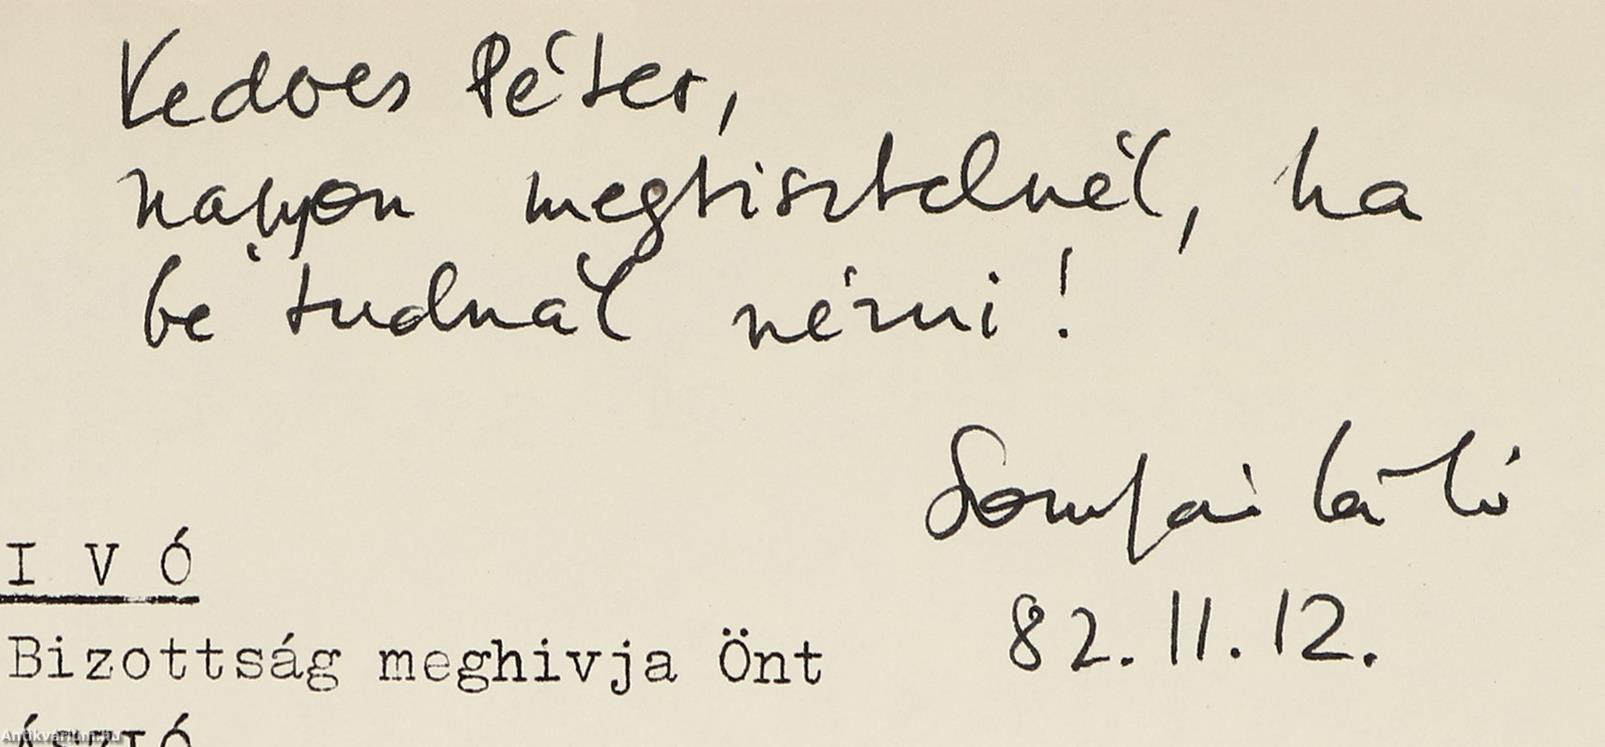 Kedves Péter,
nagyon megtisztelnél, ha
be tudnál nézni!
Somfai László
82.11.12.
I V Ó
Bizottság meghivja Önt
ÁSZLÓ
Antikvarium.hu